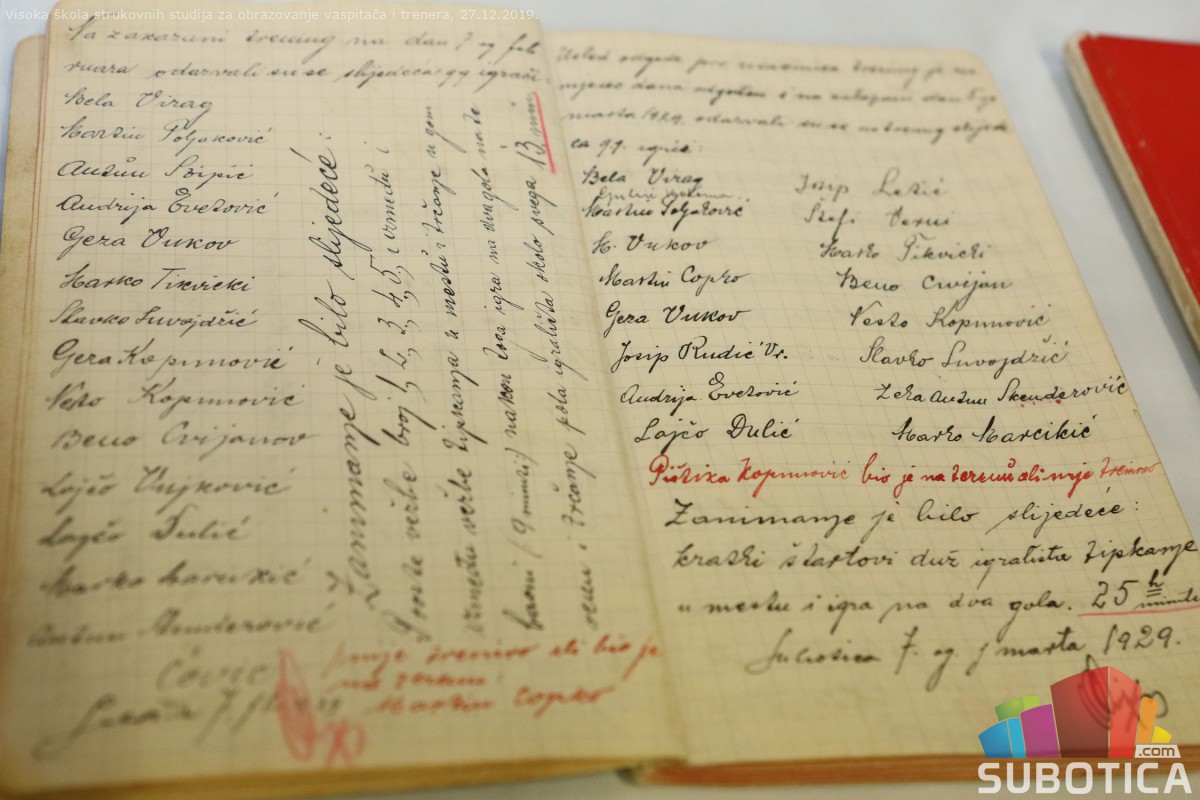 Visoka škola strukovnih studija za obrazovanje vaspitača i trenera, 27.12.2019.
Na zakazani trening na dan 7 og feb
ruara odazvali su se slijedeća gg igrači
Bela Virag
Martin Poljaković
Antun Stipić
Andrija Evetović
Geza Vukov
Marko Tikvicki
Slavko Suvojdžić
Geza Kopunović
Vesto Kopunović
Beno Cvijanov
Lojčo Vujković
Lojčo Dulić
Marko Marcikić
Antun Skenderović
Čović
7.
Zanimanje je bilo slijedeće:
vežbe broj 1, 2, 3, 4, 5 i između
između vežbe tipkanja u mestu i trčanje u
(9 minuti) nakon toga igra na dva gola na
i trčanje pola igrališta okolo svega 13 min.
nije trenirao ali bio je
na terenu:
Martin Copko
trening je
mjesec dana odgođen i na zakazani dan 5
marta 1929. odazvali su se na trening slijede
ća g.g. igrači:
Bela Virag
Martin Poljaković
M. Vukov
Martin Copko
Geza Vukov
Josip Rudić Vr.
Andrija Evetović
Lojčo Dulić
Josip
Štefi
Marko Tikvicki
Beno Cvijan
Vesto Kopunović
Slavko Suvojdžić
Antun Skenderović
Marko Marcikić
Kopunović bio je na terenu ali nije trenirao
Zanimanje je bilo slijedeće:
kratki štartovi duž igrališta tipkanje
u mestu i igra na dva gola. 25 minuta
Subotica 7. og marta 1929.
SUBOTICA
.com